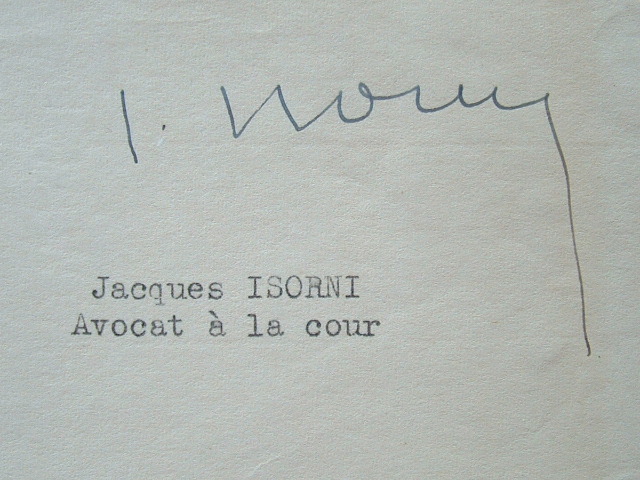 J. Isorni
Jacques ISORNI
Avocat à la cour